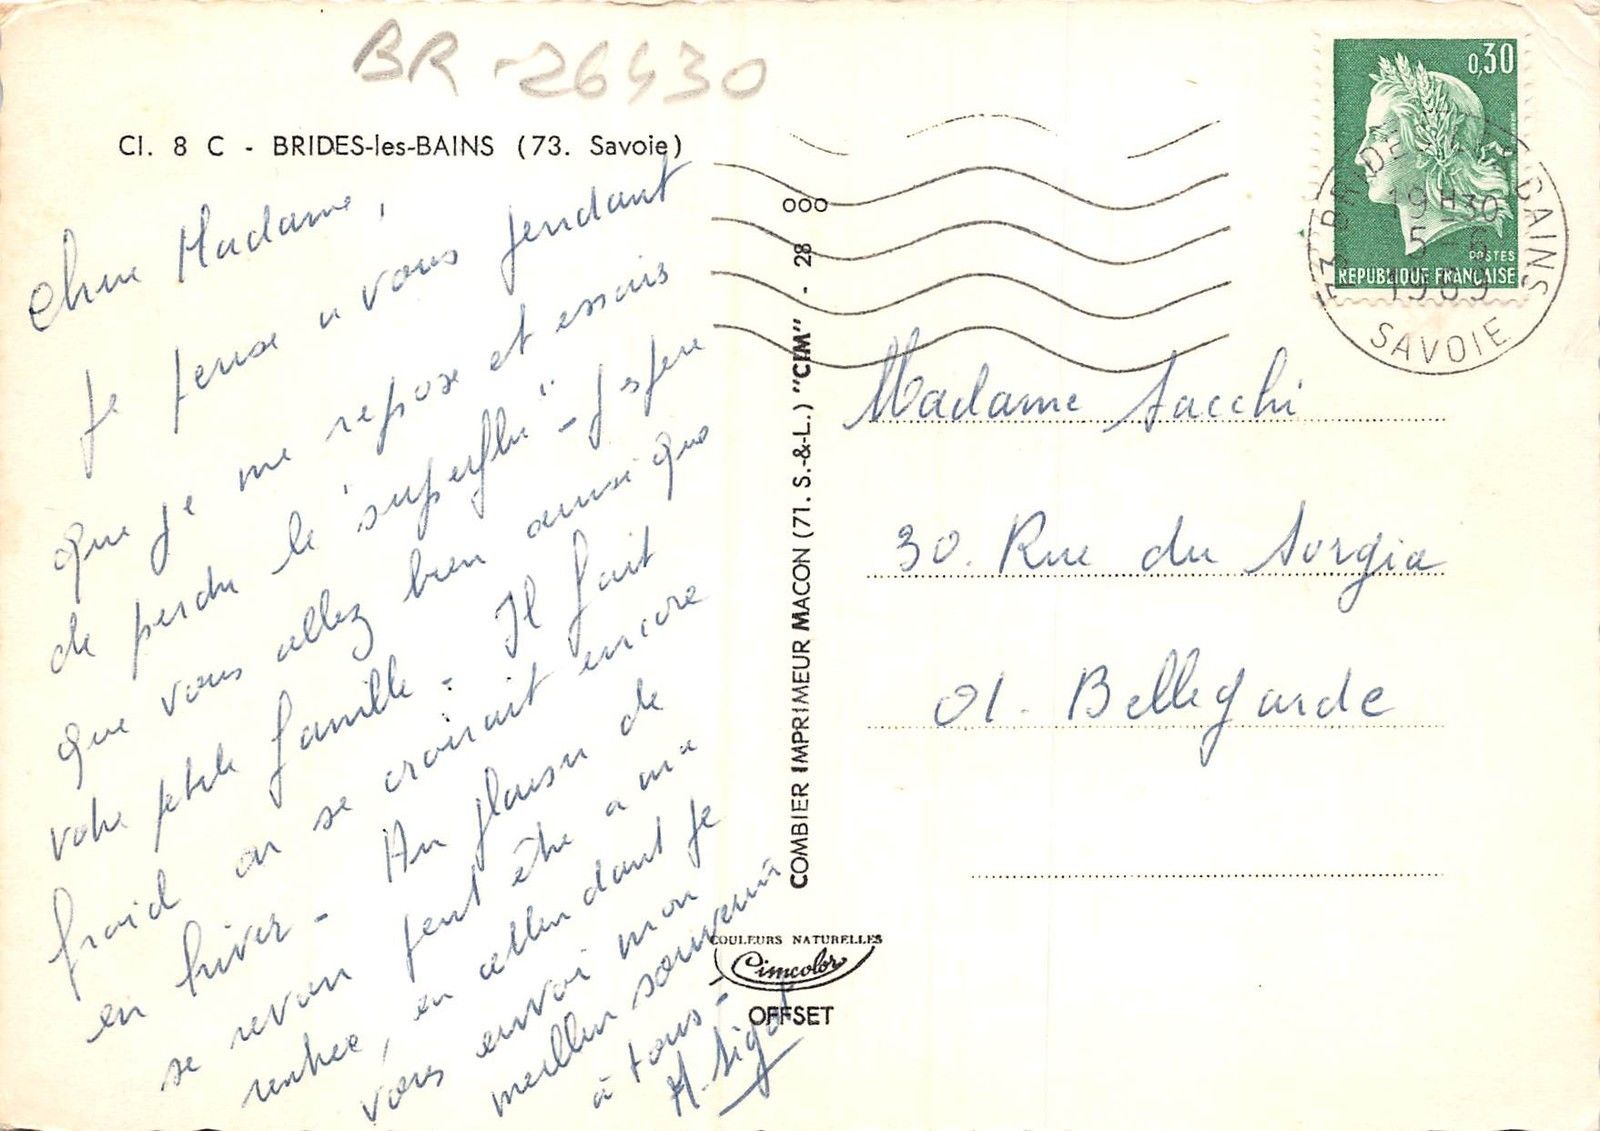 BR-26430
Cl. 8 C - BRIDES-les-BAINS (73. Savoie)
Chere Madame,
Je pense a vous pendant
que je me repose et essais
de perdre le "superflu" - J'espere
que vous allez bien ainsi que
votre petite famille - Il fait
froid on se croirait encore
en hiver - Au plaisir de
se revoir peut être a ma
rentrée, en attendant je
vous envoi mon
meilleur souvenir
à tous -
COMBIER IMPRIMEUR MACON (71. S.-&-L.) "CIM" - 28
000
COULEURS NATURELLES
Cimcolor
OFFSET
0,30
POSTES
REPUBLIQUE FRANÇAISE
73 BRIDES LES BAINS
19H30
5-6
1969
SAVOIE
Madame Sacchi
30. Rue du Sorgia
01. Bellegarde